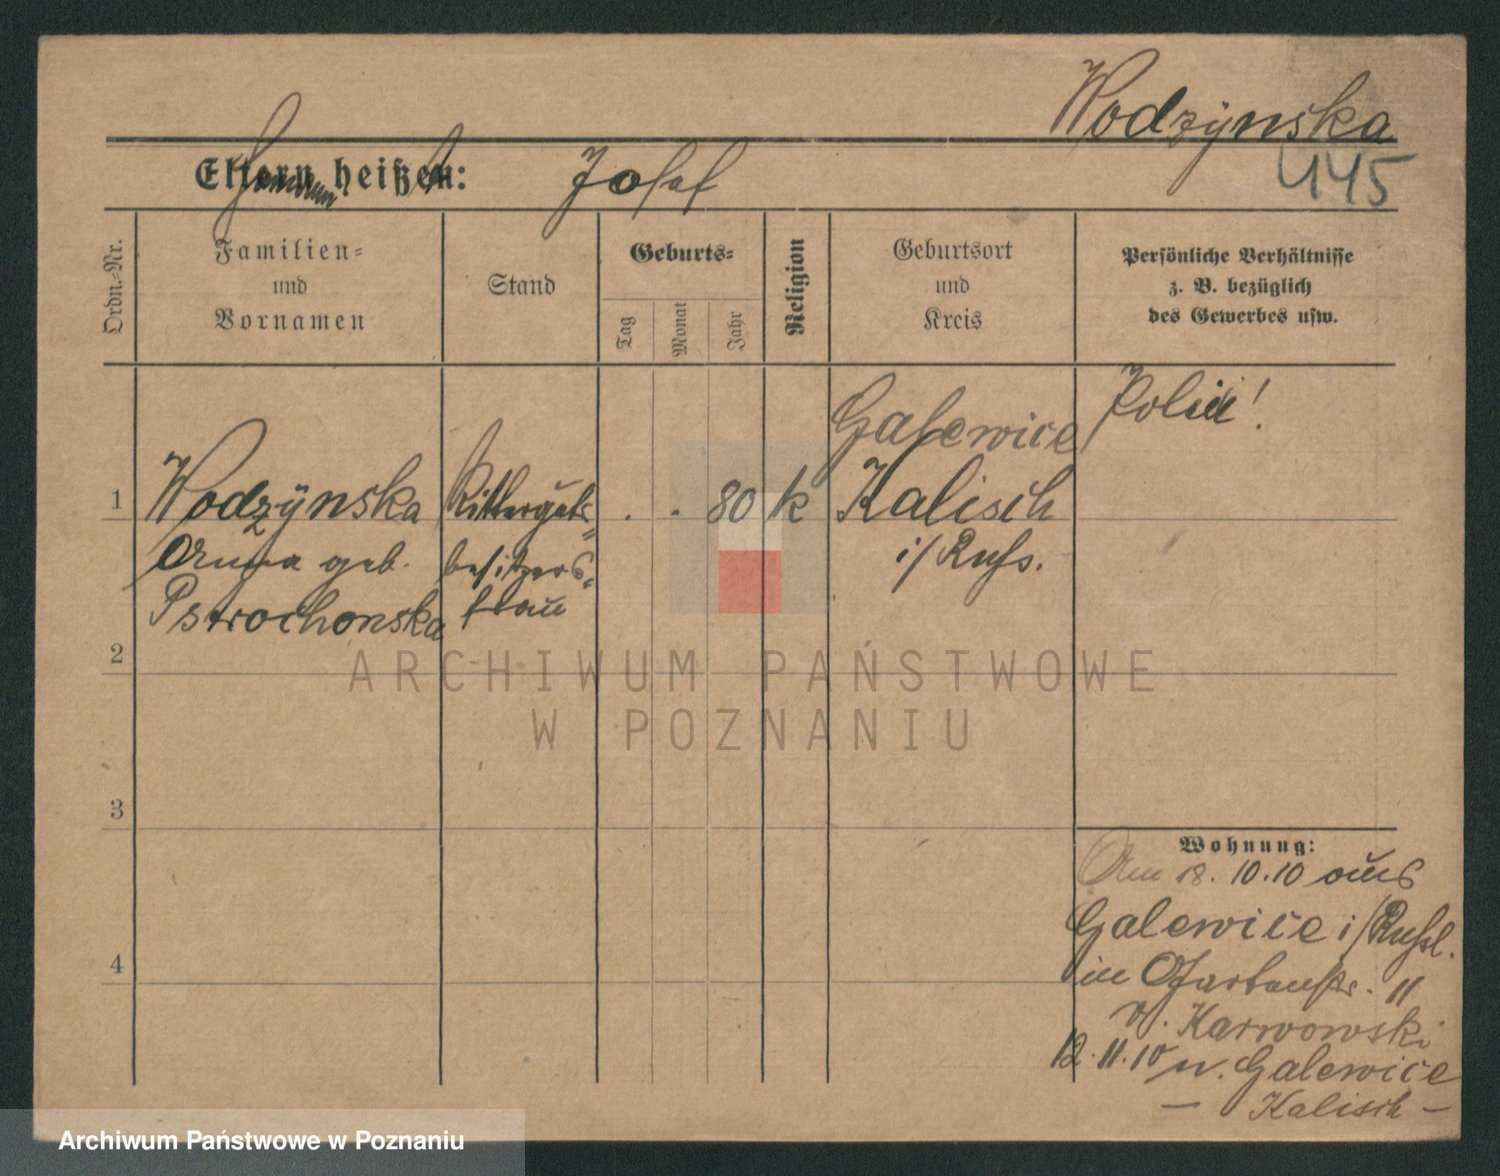 Wodzÿnska
445
Eltern heißen: Josef
Ordn.-Nr.
Familien-
und
Vornamen
Stand
Geburts-
Tag
Monat
Jahr
Religion
Geburtsort
und
Kreis
Persönliche Verhältnisse
z. B. bezüglich
des Gewerbes usw.
1
Wodzÿnska
Anna geb.
Pstrochonska
Ritterguts-
besitzers-
frau
. . 80
k
Galewice
Kalisch
i/Russ.
Polin!
2
3
4
Wohnung:
Am 18.10.10 aus
Galewice i/Russl.
in Gartenstr. 11
b. Karwowski
12.11.10 n. Galewice
— Kalisch —
ARCHIWUM PAŃSTWOWE
W POZNANIU
Archiwum Państwowe w Poznaniu